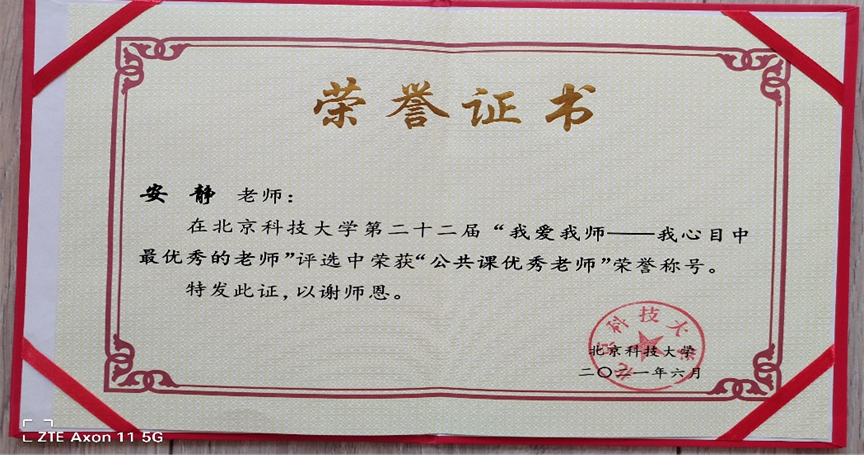 荣誉证书
安静 老师：
在北京科技大学第二十二届“我爱我师——我心目中
最优秀的老师”评选中荣获“公共课优秀老师”荣誉称号。
特发此证，以谢师恩。
北京科技大学
北京科技大学
二〇二一年六月
ZTE Axon 11 5G